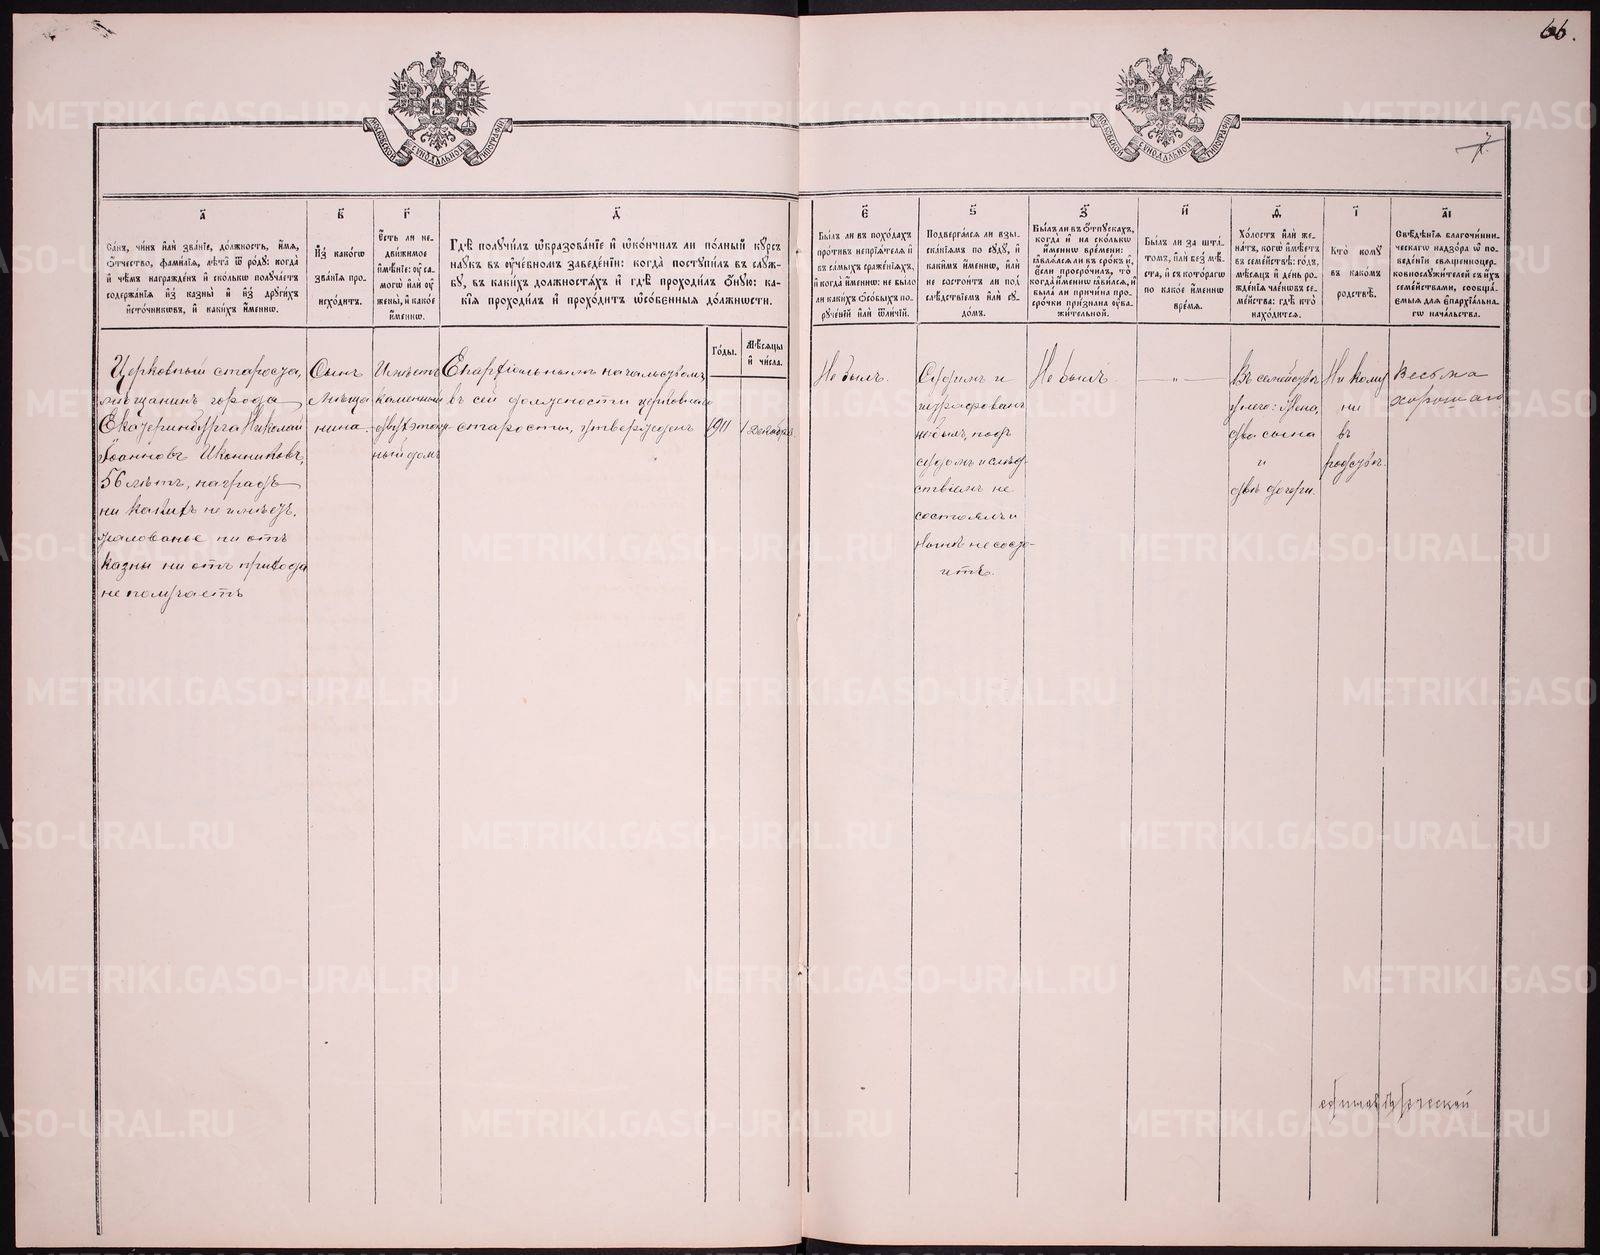 66.
МОСКОВСКОЙ СѴНОДАЛЬНОЙ ТИПОГРАФІИ
МОСКОВСКОЙ СѴНОДАЛЬНОЙ ТИПОГРАФІИ
7.
а҃
Са́нъ, чи́нъ и҆лѝ зва́нїе, до́лжность, и҆́мѧ,
ѻ҆́тчество, фами́лїѧ, лѣ́та ѿ ро́дꙋ: когда̀
и҆ чѣ́мъ награжде́нъ и҆ ско́лькѡ полꙋча́етъ
содержа́нїѧ и҆з̾ казны̀ и҆ и҆з̾ дрꙋги́хъ
и҆сто́чникѡвъ, и҆ каки́хъ и҆́меннѡ.
в҃
И҆з̾ какогѡ
зва́нїѧ про-
исхо́дитъ.
г҃
Е҆́сть ли не-
дви́жимое
и҆мѣ́нїе: ᲂу҆ са-
могѡ̀ и҆лѝ ᲂу҆
жены̀, и҆ како́е
и҆́меннѡ.
д҃
Гдѣ̀ полꙋчи́лъ ѡ҆бразова́нїе и҆ ѡ҆ко́нчилъ ли по́лный кꙋ́рсъ
наꙋ́къ въ ᲂу҆че́бномъ заведе́нїи: когда̀ постꙋпи́лъ въ слꙋ́ж-
бꙋ, въ каки́хъ до́лжностѧхъ и҆ гдѣ̀ проходи́лъ ѻ҆́нꙋю: ка-
кі́ѧ проходи́лъ и҆ прохо́дитъ ѡ҆со́бенныѧ до́лжности.
Го́ды.
Мѣ́сѧцы
и҆ чи́сла.
є҃
Бы́лъ ли въ похо́дахъ
проти́въ непрїѧ́телѧ и҆
въ са́мыхъ сраже́нїѧхъ,
и҆ когда̀ и҆́меннѡ: не бы́ло
ли каки́хъ ѻ҆со́быхъ по-
рꙋче́нїй и҆лѝ ѿли́чїй.
ѕ҃
Подверга́лсѧ ли взы-
ска́нїѧмъ по сꙋдꙋ̀, и҆
каки́мъ и҆́меннѡ, и҆лѝ
не состои́тъ ли под̾
слѣ́дствїемъ и҆лѝ сꙋ-
до́мъ.
з҃
Бы́лъ ли въ ѻ҆́тпꙋскахъ,
когда̀ и҆ на ско́лькѡ
и҆́меннѡ вре́мени:
ꙗ҆влѧ́лсѧ ли въ сро́къ и҆,
є҆́сли просро́чилъ, то̀
когда̀ и҆́меннѡ ꙗ҆ви́лсѧ, и҆
была̀ ли причи́на про-
сро́чки при́знана ᲂу҆ва-
жи́тельной.
и҃
Бы́лъ ли за шта́-
томъ, и҆лѝ без̾ мѣ́-
ста, и҆ съ кото́рагѡ
по како́е и҆́меннѡ
вре́мѧ.
ѳ҃
Хо́лостъ и҆лѝ же-
на́тъ, когѡ̀ и҆мѣ́етъ
въ семе́йствѣ: го́дъ,
мѣ́сѧцъ и҆ де́нь ро-
жде́нїѧ чле́нѡвъ се-
ме́йства: гдѣ̀ кто̀
нахо́дитсѧ.
і҃
Кто̀ комꙋ̀
въ како́мъ
родствѣ̀.
а҃і
Свѣ́дѣнїѧ благочи́нни-
ческагѡ надзо́ра ѡ҆ по-
веде́нїи свѧщенноцер-
ковнослꙋжи́телей съ и҆́хъ
семе́йствами, сообща́-
ємыѧ для є҆парха́льна-
гѡ нача́льства.
Церковный староста,
мѣщанинъ города
Екатеринбурга Николай
Іоанновъ Иконниковъ,
56 лѣтъ, наградъ
ни какихъ не имѣетъ,
жалованье ни отъ
казны ни отъ прихода
не получаетъ
Сынъ
мѣща
нина.
Имѣетъ
каменный
двухэтаж
ный домъ
Епархіальнымъ начальствомъ
въ сей должности церковнаго
старосты, утвержденъ
1911
1 декабря
Не былъ.
Судимъ и
штрафованъ
не былъ, подъ
судомъ и слѣд
ствіемъ не
состоялъ и
нынѣ не состо-
итъ.
Не былъ
— " —
Въ семействѣ
у него: жена,
два сына
и
двѣ дочери.
Ни кому
ни
въ
родствѣ.
Весьма
хорошаго